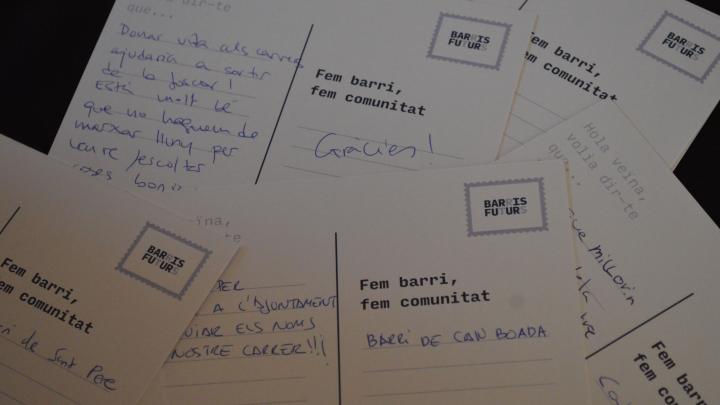 dir-te
que...
Donar vida als carrers
ajudaria a sortir
de la foscor!
Està molt bé
que no haguem de
marxar lluny per
veure/escoltar
coses bon
BARRIS
FUTURS
Fem barri,
fem comunitat
Gràcies!
BARRIS
FUTURS
Fem barri,
fem comunitat*
Hola veïna,
volia dir-te
que...
que millorin
BARRIS
FUTURS
Fem barri,
fem comunitat
de Sant Pere
ïna,
PER
A L'AJUNTAMENT
ELS NOMS
NOSTRE CARRER!!!
BARRIS
FUTURS
Fem barri,
fem comunitat
BARRI DE CAN BOADA
Fem barri,
fem com